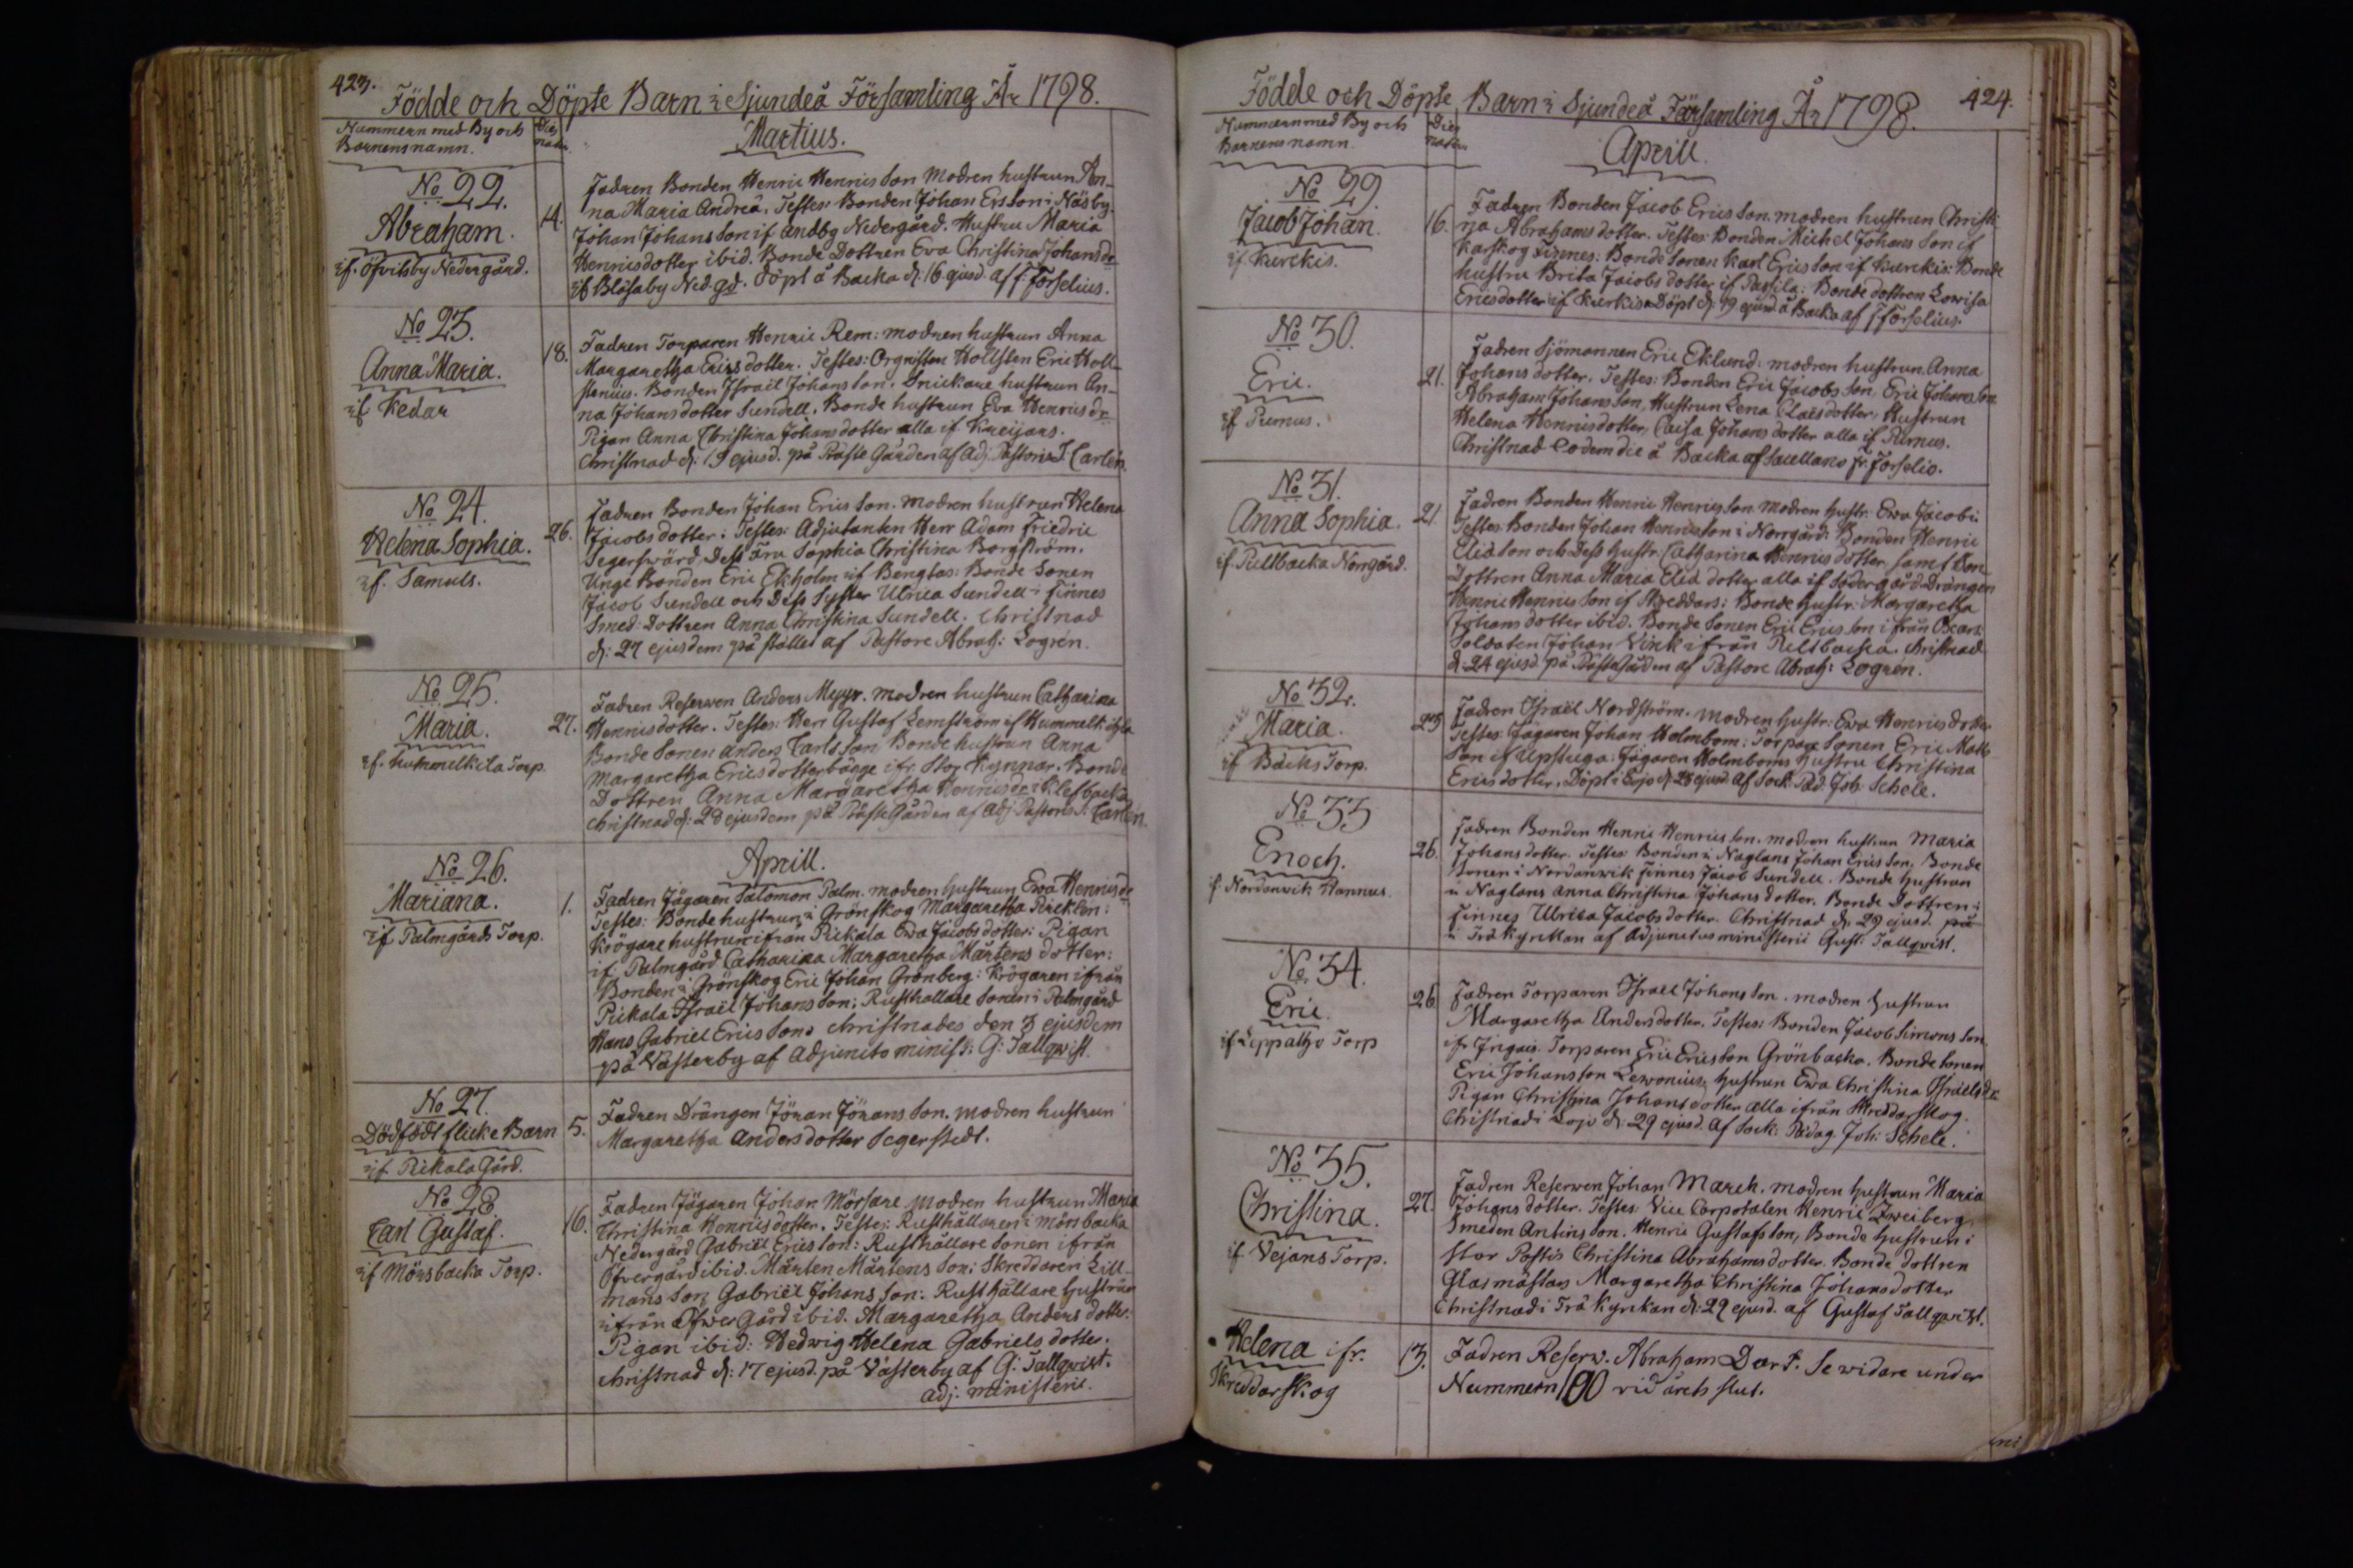 423.
Födde och Döpte Barn i Sjundeå Församling År 1798.
Nummern med By och
Barnens namn.
Dies
natu.
Martius.
No 22.
Abraham.
if. Öfvitsby Nedergård.
14.
Fadren Bonden Henric Henricsson Modren hustrun An-
na Maria Andreä. Testes: Bonden Johan Ersson i Näsby.
Johan Johansson if Andby Nedergård. Hustru Maria
Henricsdotter ibid. Bonde Dottren Eva Christina Johansdr
if Blåsaby Ned. gd. Döpt å Backa d. 16 ejusd. af F. Forselius.
No 23.
Anna Maria.
if Kedar
18.
Fadren Torparen Henric Rem: modren hustrun Anna
Margaretha Ericsdotter. Testes: Orgnisten Hollsten Eric Holl-
stenius. Bonden Israël Johansson. Snickare hustrun An-
na Johansdotter Sundell. Bonde hustrun Eva Henricsdr
Pigan Anna Christina Johansdotter alla if Kreijars.
Christnad d. 19 ejusd. på Präste Gården af Adj. Pastoris J. Carlén
No 24.
Helena Sophia.
if. Samuls.
26.
Fadren Bonden Johan Ericsson. modren hustrun Helena
Jacobsdotter: Testes: Adjutanten Herr Adam Friedric
Segersvärd, Dess Fru Sophia Christina Borgström.
Unge Bonden Eric Ekholm if Bengtas: Bonde Sonen
Jacob Sundell och Dess Syster Ulrica Sundell i Finnes
Smed-Dottren Anna Christina Sundell. Christnad
d: 27 ejusdem på stället af Pastore Abrah: Logrén.
No 25.
Maria.
if. hummelkila Torp.
27.
Fadren Reserven Anders Meyr. modren hustrun Catharina
Henricsdotter. Testes: Herr Gustaf Lemström if Hummelkihla
Bonde Sonen Anders Carlsson Bonde hustrun Anna
Margaretha Ericsdotter bägge ifr. Stor Kynnar. Bonde
Dottren Anna Margaretha Henricsdr i Klefbacka
christnad d: 28 ejusdem på PrästeGården af Adj: Pastoris J: Carlén.
Aprill.
No 26.
Mariana.
if Palmgårds Torp.
1.
Fadren Jägaren Salomon Palm. modren hustrun Ewa Henricsdr
Testes: Bonde hustrun i Grönskog Margaretha Pircklen:
Krögare hustrun ifrån Pickala Ewa Jacobsdotter: Pigan
if Palmgård Catharina Margaretha Mårtensdotter:
Bonden i Grönskog Eric Johan Grönberg: Krögaren ifrån
Pickala Israël Johansson: Rusthållare Sonen i Palmgård
Hans Gabriel Ericsson christnades den 3 ejusdem
på Västerby af Adjuncto minist: G: Tallqwist.
No 27.
Dödfödt flicke Barn
if Pickala Gård.
5.
Fadren Drängen Jöran Jöransson. modren hustrun
Margaretha Andersdotter Segerstedt.
No 28
Carl Gustaf.
if Mörsbacka Torp.
16.
Fadren Jägaren Johan Mörsare modren hustrun Maria
Christina Henricsdotter. Testes: Rusthållaren i Mörsbacka
Nedergård Gabriel Ericsson: Rusthållare Sonen ifrån
Öfvergård ibid. Mårten Mårtensson: Skreddaren Lill-
mans son Gabriël Johansson: Rusthållare hustrun
ifrån Öfver Gård ibid. Margaretha Andersdotter.
Pigan ibid: Hedwig Helena Gabrielsdotter.
christnad d: 17 ejusd. på Västerby af G: Tallqwist.
adj: ministerii.
424.
Födde och Döpte Barn i Sjundeå Församling År 1798.
Nummern med By och
Barnens namn.
Dies
natu.
Aprill.
No 29.
Jacob Johan.
if Kurckis.
16.
Fadren Bonden Jacob Ericsson. modren hustrun Christi-
na Abrahamsdotter. Testes: Bonden Michel Johansson if
Karskog Finnes: Bonde Sonen Karl Ericsson if Kurckis: Bonde
hustru Brita Jacobsdotter if Passila: Bonde dottren Lowisa
Ericsdotter if Kurkis. Döpt d. 19 ejusd. å Backa af F Forselius.
No 30.
Eric.
if Purnus.
21.
Fadren Sjömannen Eric Eklund: modren hustrun Anna
Johansdotter. Testes: Bonden Eric Jacobsson, Eric Johansson
Abraham Johansson, Hustrun Lena Claësdotter, Hustrun
Helena Henricsdotter, Caisa Johansdotter alla if Purnus.
Christnad eodem die å Backa af Sacellano Fr. Forselio.
No 31.
Anna Sophia.
if. Pultbacka Norrgård.
21.
Fadren Bonden Henric Henricsson modren hustr: Ewa Jacobi:
Testes. Bonden Johan Henricsson i Norrgård: Bonden Henric
Eliæson och Dess hustr: Catharina Henricsdotter samt Son-
Dottren Anna Maria Eliædotter alla if Södergård Drängen
Henric Henricsson if Skreddars: Bonde hustr: Margaretha
Johansdotter ibid. Bonde Sonen Eric Ericsson ifrån
Soldaten Johan Vink ifrån Pultbacka. christnad
d: 24 ejusd. på PrästeGården af Pastore Abrah: Logren.
No 32.
Maria.
if Bäcks Torp.
23
Fadren Israël Nordström. modren hustr: Ewa Henricsdotter
Testes: Jägaren Johan Holmbom: Torpare Sonen Eric Mats-
son if Upstuga: Jägaren Holmboms hustru Christina
Ericsdotter. Döpt i Lojo d. 28 ejusd. af Sock: Päd. Joh. Schele.
No 33
Enoch.
if. Nordanvik Hannus.
26.
Fadren Bonden Henric Henricsson. modren hustrun Maria
Johansdotter. Testes: Bonden i Naglans Johan Ericsson. Bonde
Sonen i Nordanvik Finnes Jacob Sundell. Bonde hustrun
i Naglans Anna Christina Johansdotter. Bonde Dottren i
Finnes Ulrica Jacobsdotter. Christnad d. 29 ejusd. på
i Träkyrckan af Adjunctus ministerii Gust: Tallqvist.
No 34.
Eric.
if Leppäthö Torp
26
Fadren Torparen Israel Johansson. modren hustrun
Margaretha Andersdotter. Testes: Bonden Jacob Simonsson
ifr. Ingvis. Torparen Eric Ericsson Grönbacka. Bonde Sonen
Eric Johansson Lewonius, hustrun Ewa Christina Israelsdr
Pigan Christina Johansdotter alla ifrån Skreddarskog.
Christnad i Lojo d. 29 ejusd. af Sock: Pädag. Joh: Schele.
No 35.
Christina.
if. Vejans Torp.
27.
Fadren Reserven Johan March. modren hustrun Maria
Johansdotter. Testes: Vice Corporalen Henric Zweiberg,
Smeden Antinsson. Henric Gustafsson, Bonde hustrun i
Stor Postis Christina Abrahamsdotter. Bonde dottren
Glasmästars Margaretha Christina Johansdotter
Christnad i Trä Kyrckan d. 29 ejusd. af Gustaf Tallqvist.
Helena ifr.
Skreddarskog
13.
Fadren Reserv. Abraham Dart. Se widare under
Nummern 100 vid årets slut.